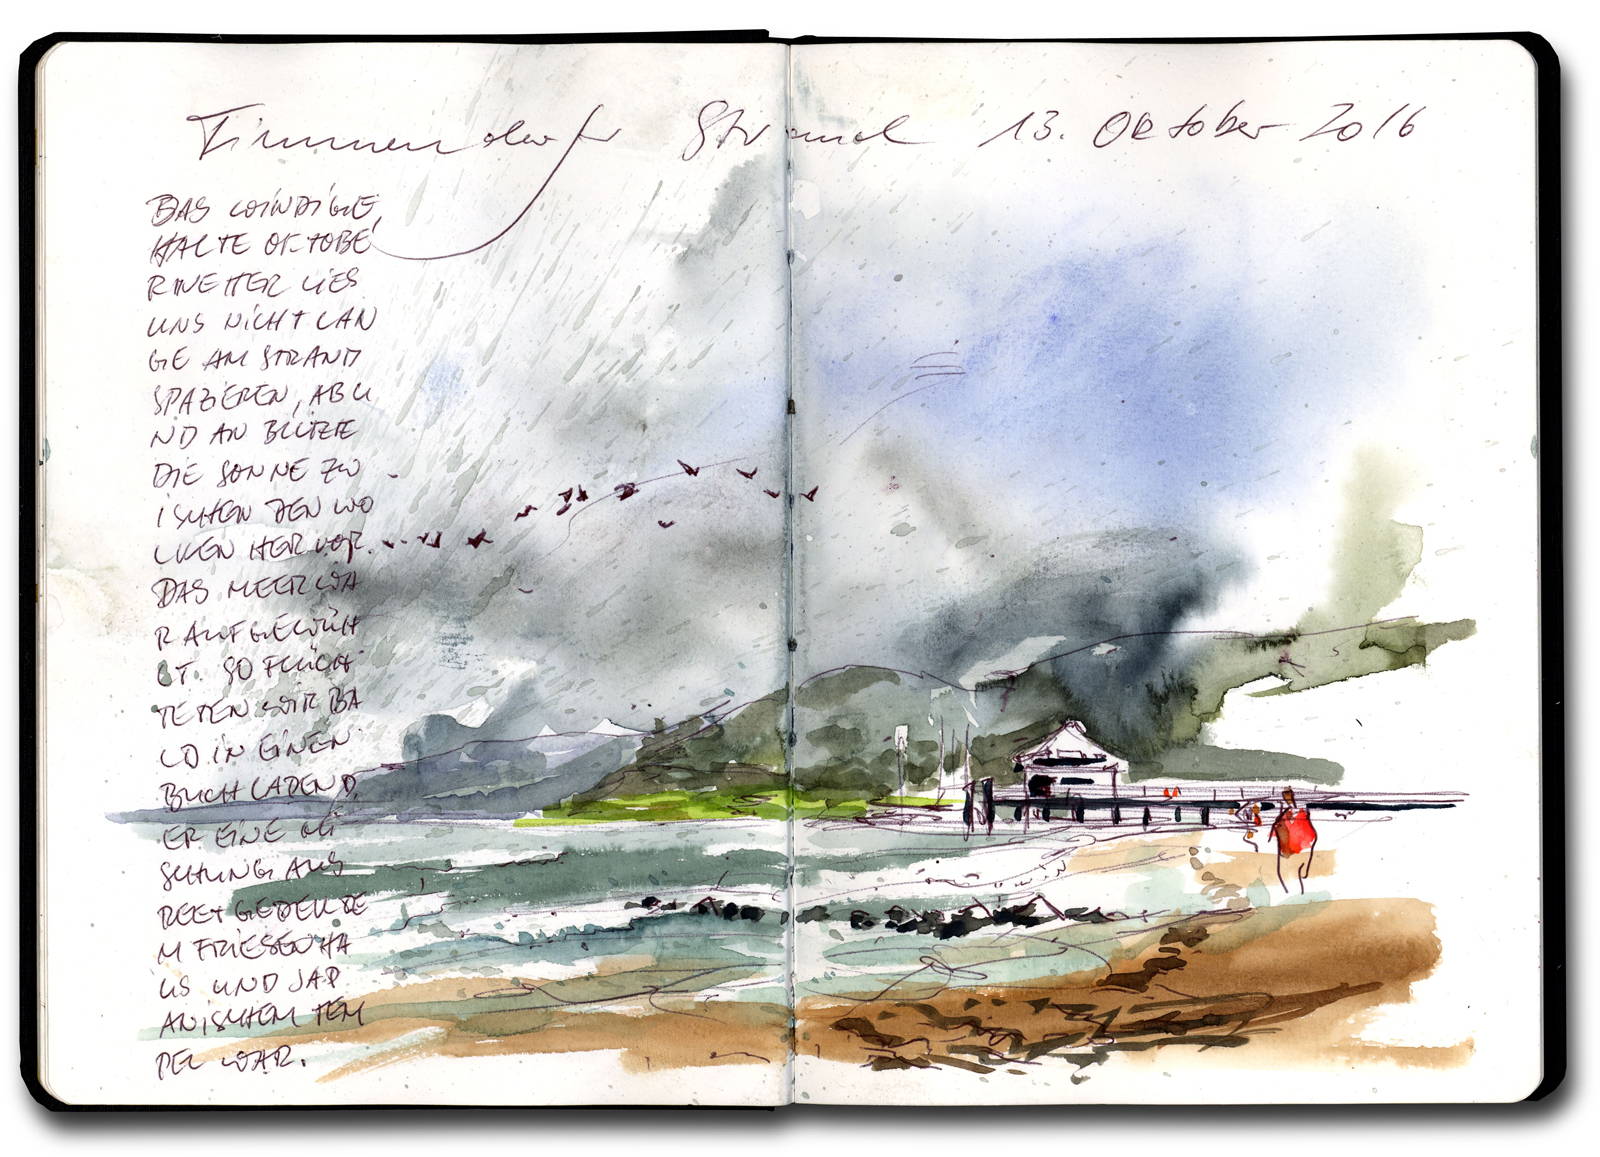 Timmendorfer Strand 13. Oktober 2016
DAS WINDIGE,
KALTE OKTOBE
RWETTER LIES
UNS NICHT LAN
GE AM STRAND
SPAZIEREN, AB U
ND AN BLITZTE
DIE SONNE ZW
ISCHEN DEN WO
LKEN HERVOR.
DAS MEER WA
R AUFGEWÜH
LT. SO FLÜCH
TETEN WIR BA
LD IN EINEN
BUCHLADEN D
ER EINE MI
SCHUNG AUS
REETGEDECKTE
M FRIESENHA
US UND JAP
ANISCHEM TEM
PEL WAR.